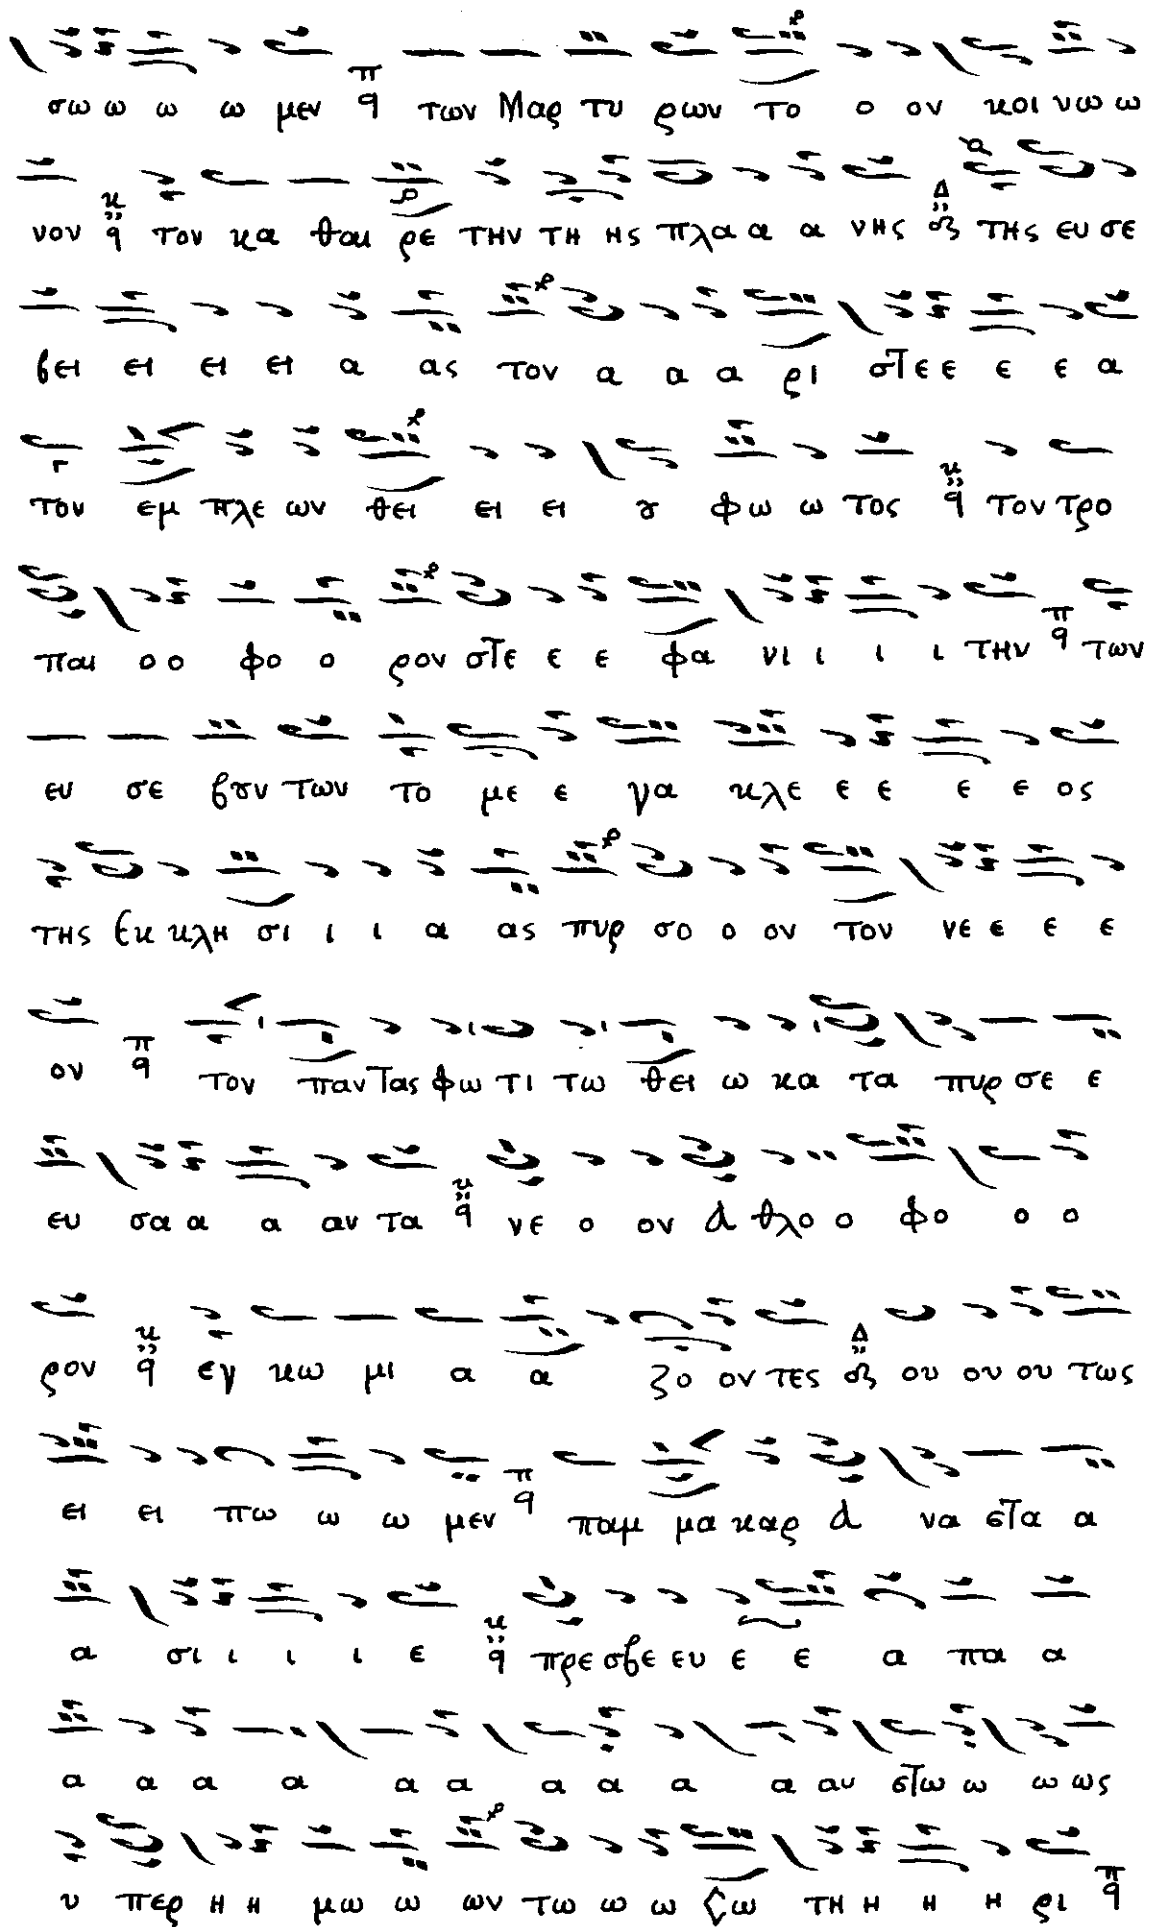 σω ω ω ω μεν π q των Μαρ τυ ρων το ο ον κοι νω ω
νον κ q τον κα θαι ρε την τη ης πλα α α νης Δ της ευ σε
βει ει ει ει α ας τον α α α ρι στε ε ε ε α
τον εμ πλε ων θει ει ει ȣ φω ω τος κ q τον τρο
παι ο ο φο ο ρον στε ε ε φα νι ι ι ι την π q των
ευ σε βȣν των το με ε γα κλε ε ε ε ε ος
της Εκ κλη σι ι ι ι α ας πυρ σο ο ον τον νε ε ε ε
ον π q τον παν τας φω τι τω θει ω κα τα πυρ σε ε
ευ σα α α αν τα κ q νε ο ον α θλο ο φο ο ο
ρον κ q εγ κω μι α α ζο ον τες Δ ου ου ου τως
ει ει πω ω ω μεν π q παμ μα καρ α να στα α
α σι ι ι ι ε κ q πρε σβε ευ ε ε α πα α
α α α α α α α α α α αυ στω ω ω ως
υ περ η η μω ω ων τω ω ω ζω τη η η η ρι π q